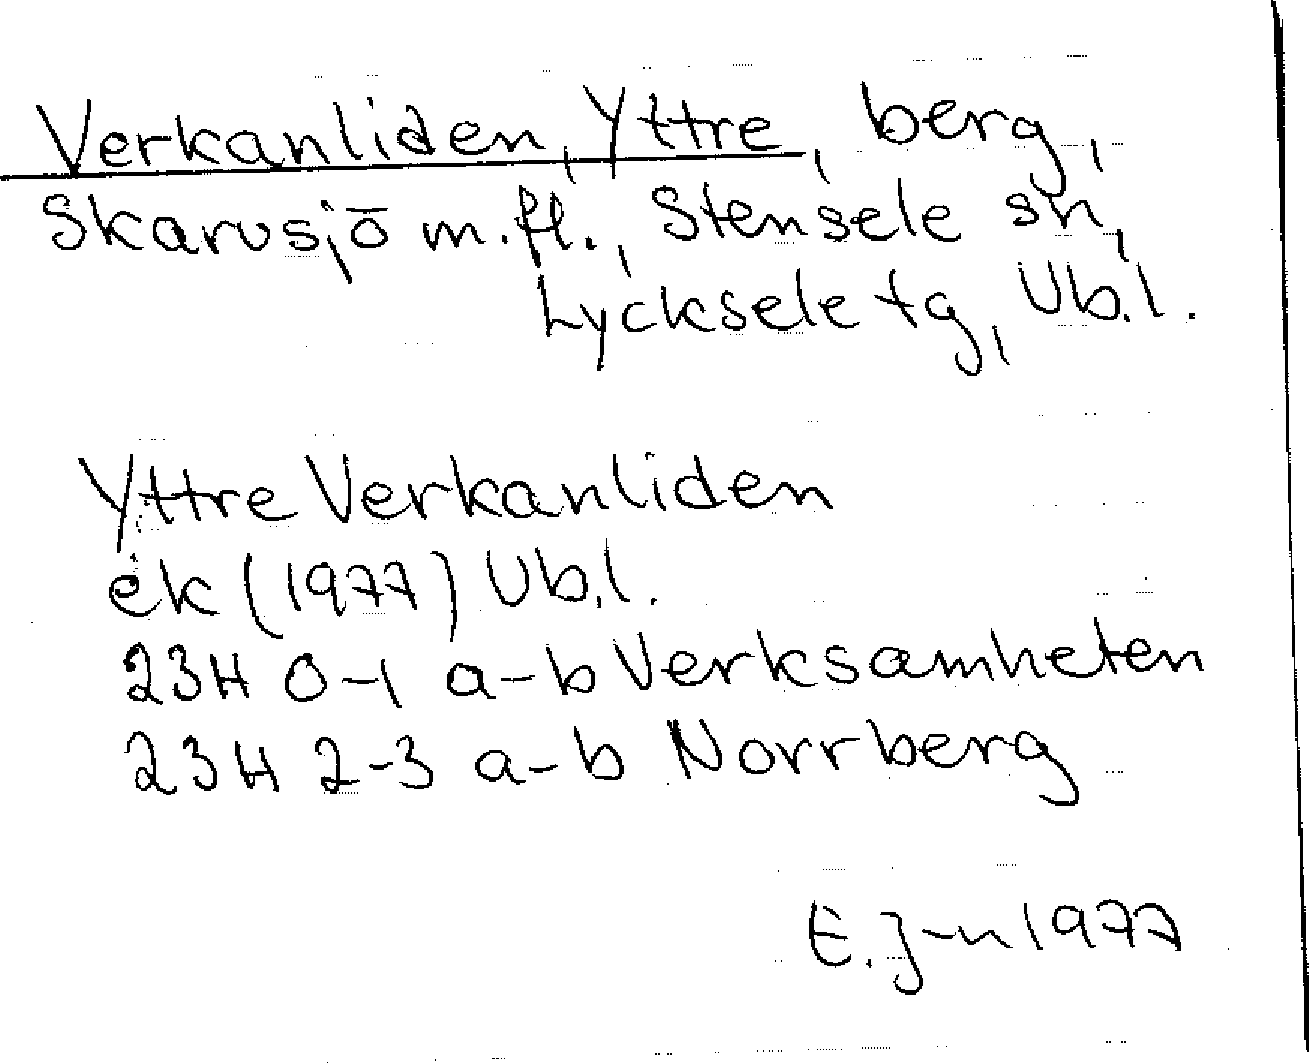 Verkanliden, Yttre, berg,
Skarvsjö m.fl., Stensele sn,
Lycksele tg, Vb.l.
Yttre Verkanliden
ek (1977) Vb.l.
23H 0-1 a-b Verksamheten
23H 2-3 a-b Norrberg
E. J-n 1977